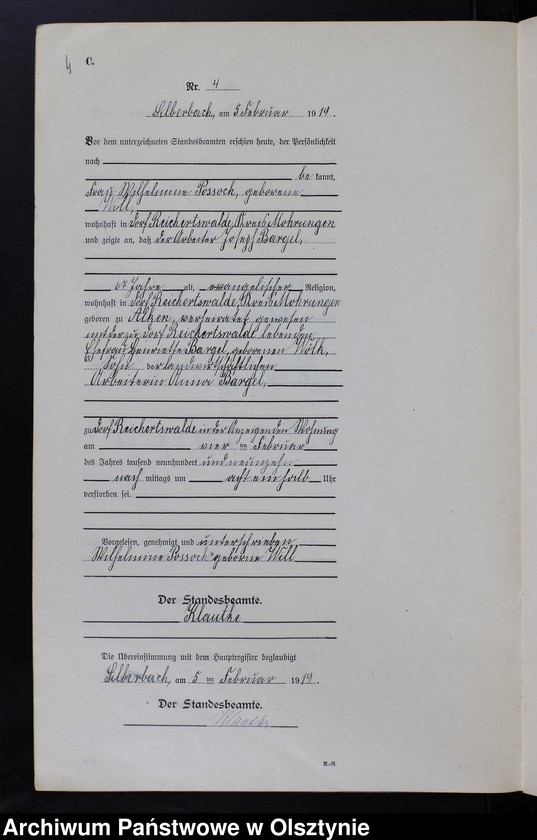 4
C.
Nr. 4
Silberbach, am 5 Februar 1919.
Vor dem unterzeichneten Standesbeamten erschien heute, der Persönlichkeit
nach
be kannt,
Frau Wilhelmine Possoch, geborene
Will,
wohnhaft in Dorf Reichertswalde, Kreis Mohrungen
und zeigte an, daß der Arbeiter Joseph Bargel,
67 Jahre alt, evangelischer Religion,
wohnhaft in Dorf Reichertswalde, Kreis Mohrungen
geboren zu Alken, verheiratet gewesen
mit der zu Dorf Reichertswalde lebenden
Ehefrau Henriette Bargel, geborenen
Sohn der landwirtschaftlichen
Arbeiterin Anna Bargel,
zu Dorf Reichertswalde in der Anzeigenden Wohnung
am vier ten Februar
des Jahres tausend neunhundert und neunzehn
nach mittags um acht ein halb Uhr
verstorben sei.
Vorgelesen, genehmigt und unterschrieben
Wilhelmine Possoch geborne Will
Der Standesbeamte.
Klautke
Die Übereinstimmung mit dem Hauptregister beglaubigt
Silberbach, am 5 ten Februar 1919.
Der Standesbeamte.
Archiwum Państwowe w Olsztynie